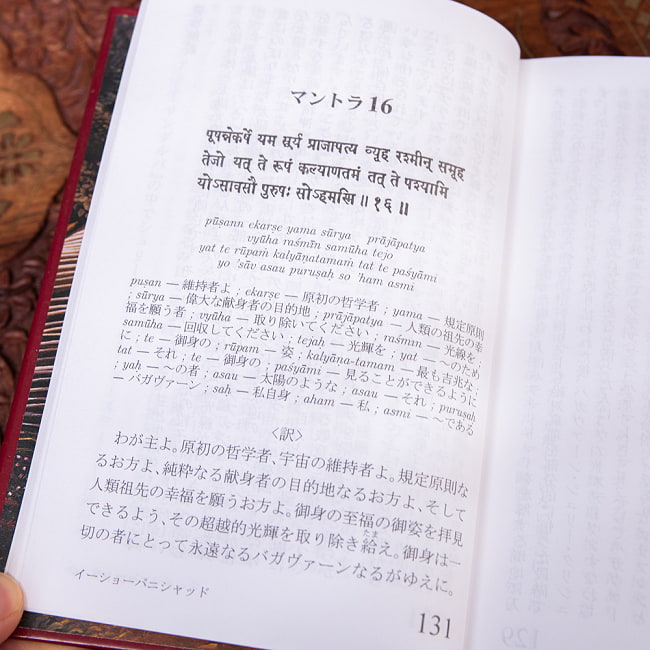 マントラ 16
पूषन्नेकर्षे यम सूर्य प्राजापत्य व्यूह रश्मीन् समूह
तेजो यत् ते रूपं कल्याणतमं तत् ते पश्यामि
योऽसावसौ पुरुषः सोऽहमस्मि ॥ १६ ॥
pūṣann ekarṣe yama sūrya prājāpatya
vyūha raśmīn samūha tejo
yat te rūpaṁ kalyāṇatamaṁ tat te paśyāmi
yo 'sāv asau puruṣaḥ so 'ham asmi
puṣan — 維持者よ ; ekarṣe — 原初の哲学者 ; yama — 規定原則
; sūrya — 偉大な献身者の目的地 ; prājāpatya — 人類の祖先の幸
福を願う者 ; vyūha — 取り除いてください ; raśmīn — 光線を ;
samūha — 回収してください ; tejaḥ — 光輝を ; yat — 〜のため
に ; te — 御身の ; rūpam — 姿 ; kalyāṇa-tamam — 最も吉兆な ;
tat — それ ; te — 御身の ; paśyāmi — 見ることができるように
; yaḥ — 〜の者 ; asau — 太陽のような ; asau — それ ; puruṣaḥ
— バガヴァーン ; saḥ — 私自身 ; aham — 私 ; asmi — 〜である
〈訳〉
わが主よ。原初の哲学者、宇宙の維持者よ。規定原則な
るお方よ、純粋なる献身者の目的地なるお方よ、そして
人類祖先の幸福を願うお方よ。御身の至福の御姿を拝見
できるよう、その超越的光輝を取り除き給え。御身は一
たま
切の者にとって永遠なるバガヴァーンなるがゆえに。
イーショーパニシャッド
131